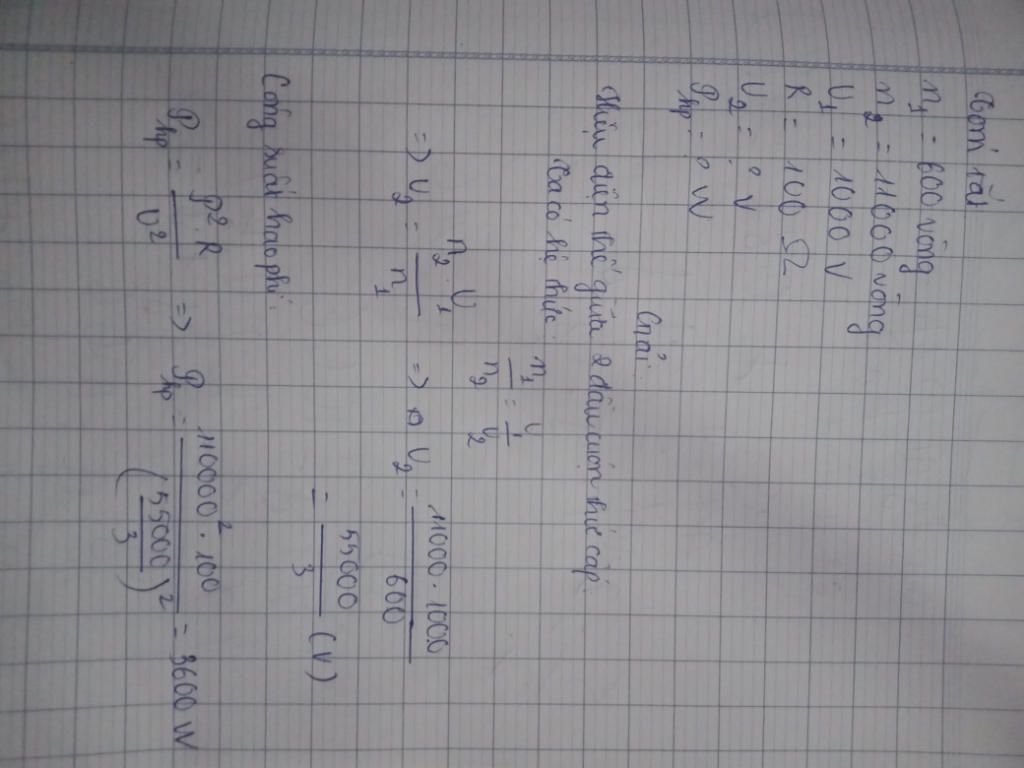 Tóm tắt
n1 = 600 vòng
n2 = 11000 vòng
U1 = 1000 V
R = 100 Ω
U2 = ? V
Php = ? W
Giải
Hiệu điện thế giữa 2 đầu cuộn thứ cấp:
Ta có hệ thức: n1/n2 = U1/U2
=> U2 = n2.U1/n1 => U2 = 11000.1000/600
= 55000/3 (V)
Công suất hao phí:
Php = P².R/U² => Php = 110000².100/(55000/3)² = 3600 W